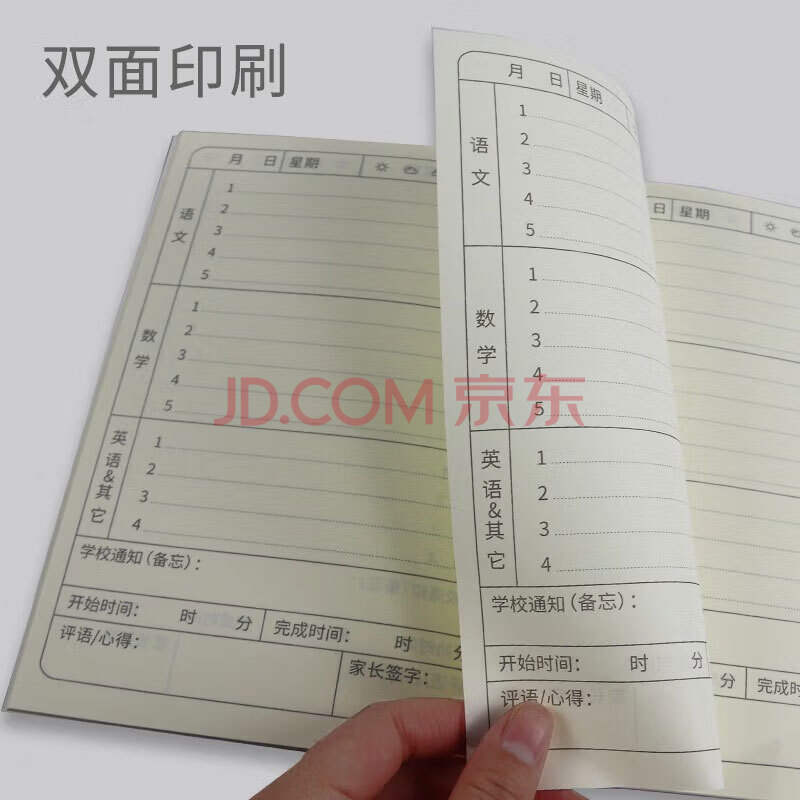 双面印刷
月 日 星期
语文
1
2
3
4
5
数学
1
2
3
4
5
英语&其它
1
2
3
4
学校通知(备忘):
开始时间: 时 分 完成时间: 时 分
评语/心得:
家长签字:
月 日 星期
语文
1
2
3
4
5
数学
1
2
3
4
5
英语&其它
1
2
3
4
学校通知(备忘):
开始时间: 时 分
评语/心得:
日 星期
分 完成时
JD.COM 京东